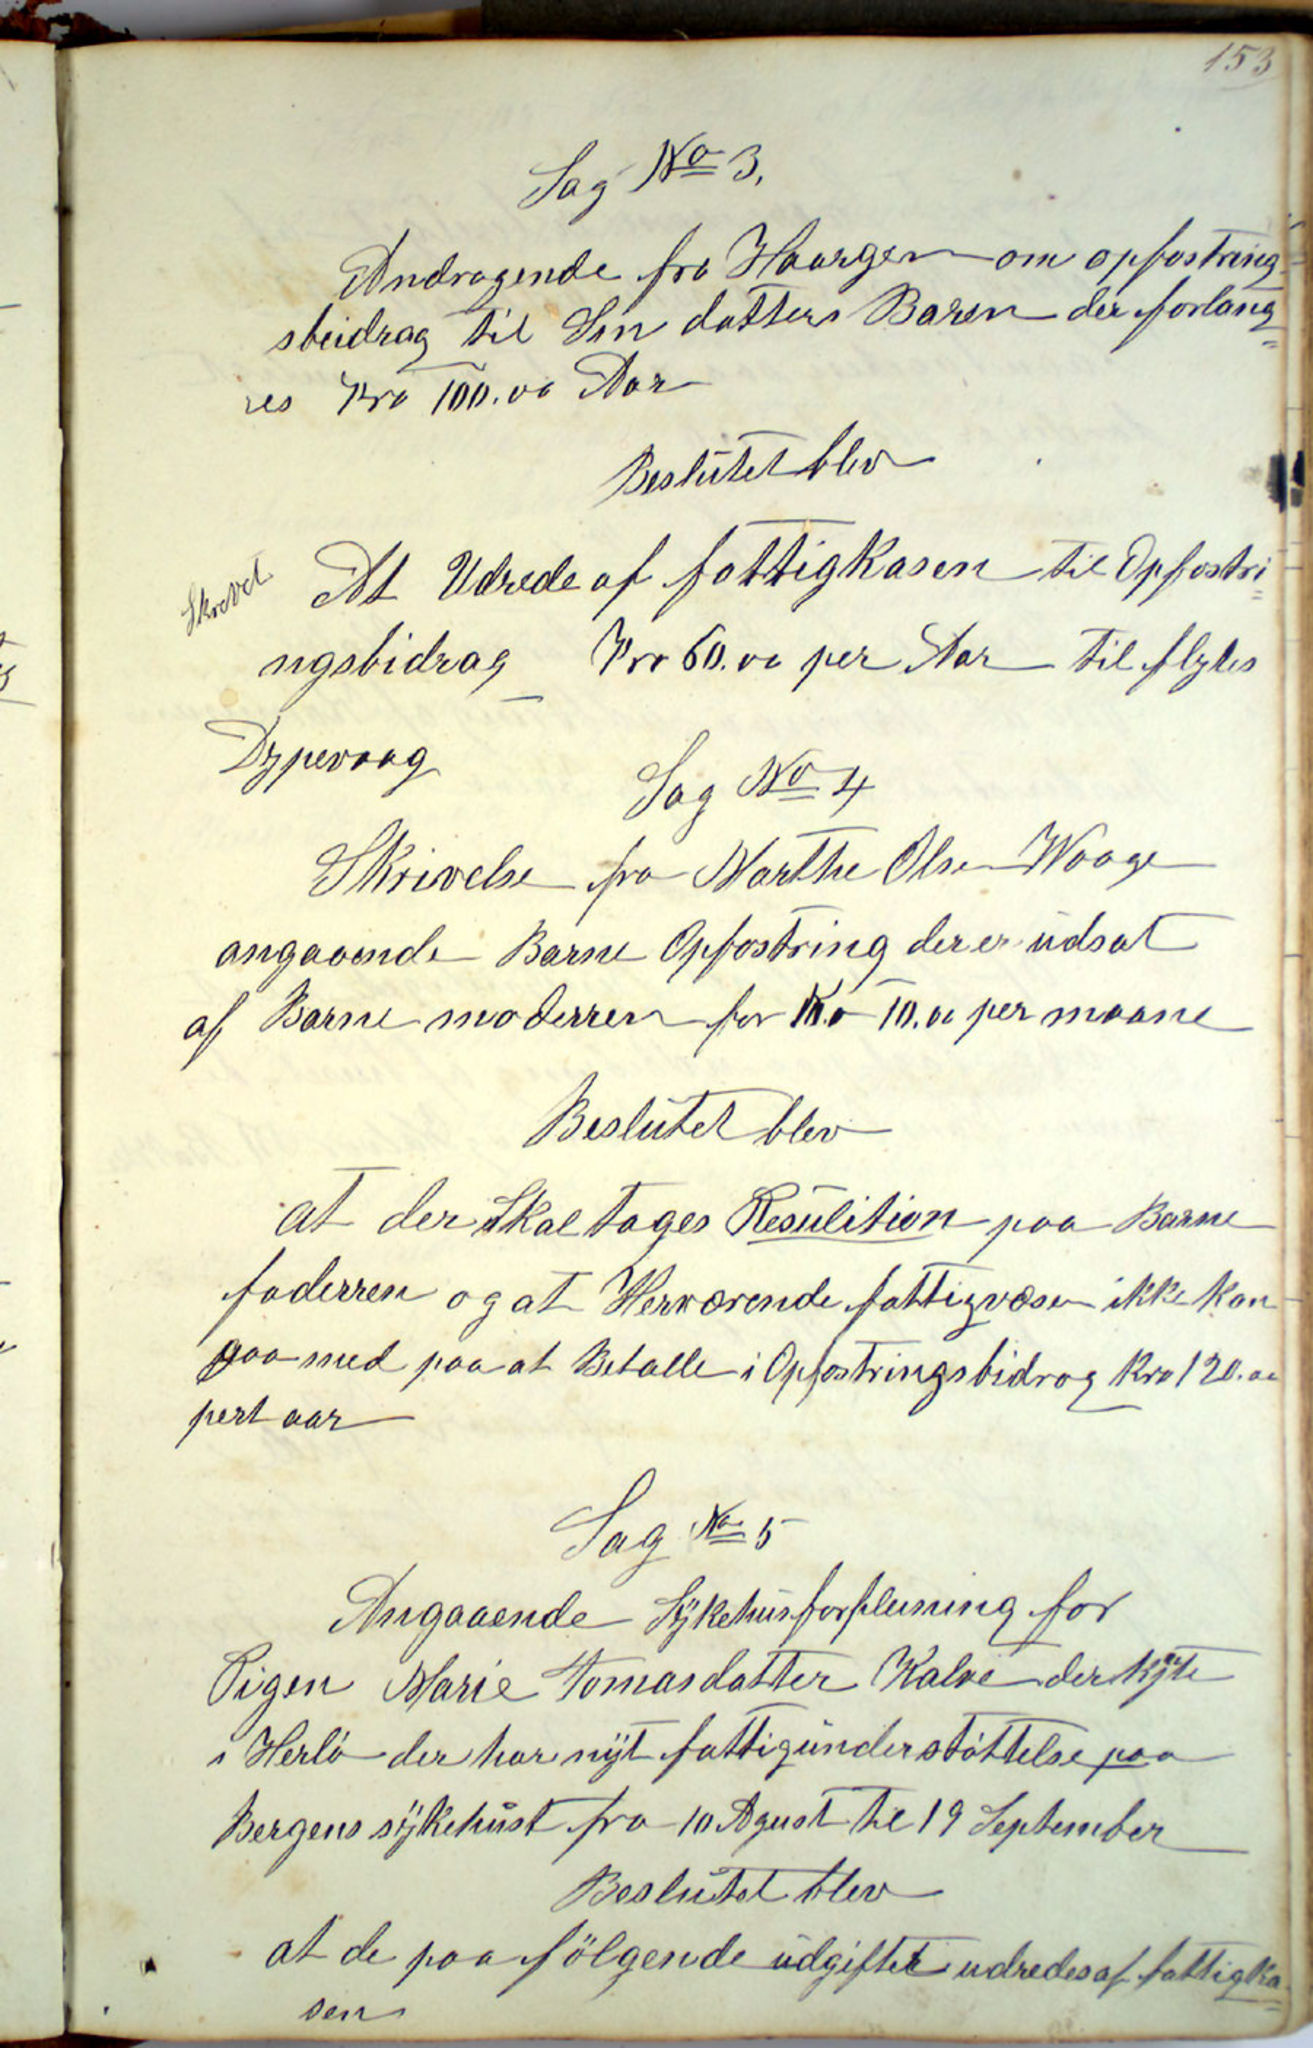 153
Sag No 3,
Andragende fra Haargen om opfostring
sbeidrag til Sin datters Baren der forlang
res Kro 100.00 Aar
Beslutet blev
Skrevet
At Udrede af fattigkasen til Opfostri
ngsbidrag Kro 60.00 per Aar til flytes
Dypevaag
Sag No 4
Skrivelse fra Marthe Olse Waage
angaaende Barne Opfostring der er udsat
af Barne moderren for Kro 10.00 per maane
Beslutet blev
at der Skal tages Resulition paa Barne
faderren og at Herværende fattigvæsen ikke kan
gaa med paa at Betalle i Opfostringsbidrag Kro 120.00
pert aar
Sag No 5
Angaaende Sykehusforpleining for
Pigen Marie Tomasdatter Kalve der
i Herlö der har nyt fattigunderstöttelse paa
Bergens sykehust fra 10 Agust til 19 September
Beslutet blev
at de paa fölgende udgifter udredes af fattigka
sen